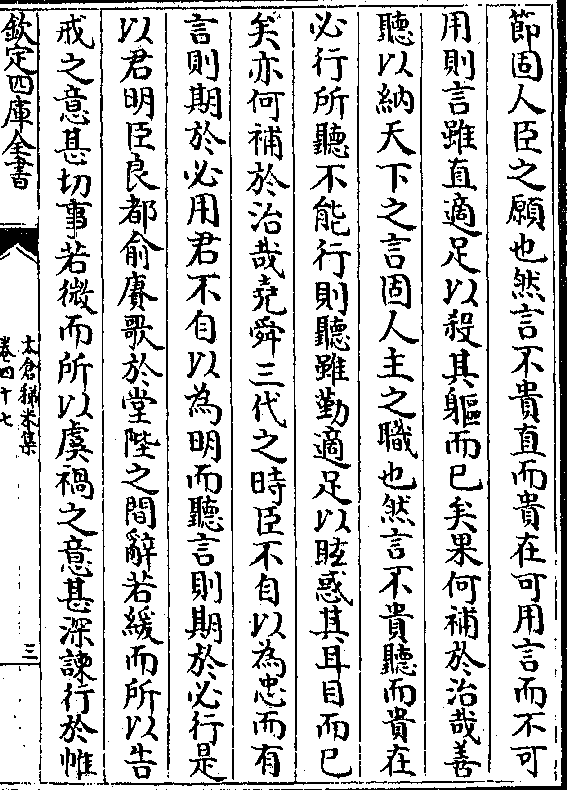 節固人臣之願也然言不貴直而貴在可用言而不可
用則言雖直適足以殺其軀而已矣果何補於治哉善
聽以納天下之言固人主之職也然言不貴聽而貴在
必行所聽不能行則聽雖勤適足以眩惑其耳目而已
矣亦何補於治哉堯舜三代之時臣不自以為忠而有
言則期於必用君不自以為明而聽言則期於必行是
以君明臣良都俞賡歌於堂陛之間辭若緩而所以告
戒之意甚切事若微而所以虞禍之意甚深諫行於帷
欽定四庫全書
太倉稊米集
卷四十七
三